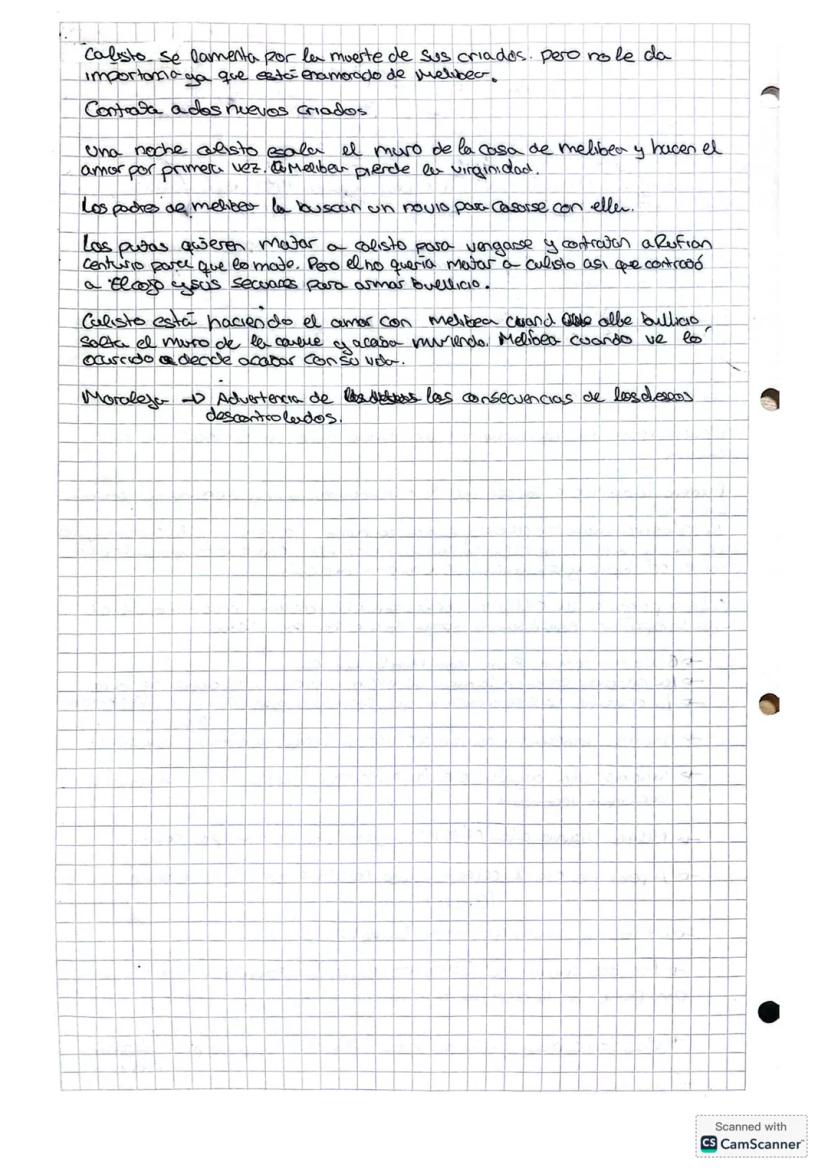 Calisto se lamenta por la muerte de sus criados. pero no le da
importancia ya que está enamorado de Melibea.
Contrata a dos nuevos criados
Una noche calisto escala el muro de la casa de melibea y hacen el
amor por primera vez. Melibea pierde la virginidad.
Los padres de melibea la buscan un novio para casarse con ella.
Las putas quieren matar a calisto para vengarse y contratan a Rufian
Centurio para que lo mate. Pero el no quería matar a calisto asi que contrató
a El cojo y sus secuaces para armar bullicio.
Calisto está haciendo el amor con melibea cuand olbe bullicio
salta el muro de la calle y acaba muriendo. Melibea cuando ve lo
ocurrido decide acabar con su vida.
Moraleja → Advertencia de las consecuencias de los deseos
descontrolados.
Scanned with
CS CamScanner